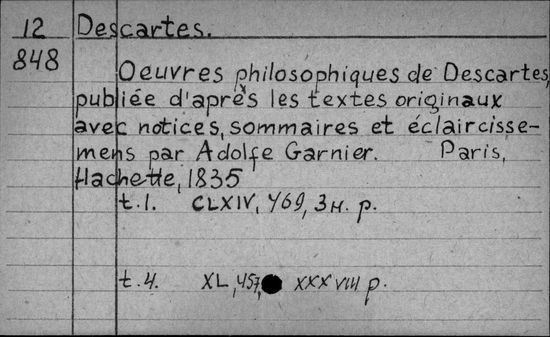 12 Descartes.
848
Oeuvres philosophiques de Descartes,
publiée d'après les textes originaux
avec notices, sommaires et éclaircisse-
mens par Adolfe Garnier. Paris,
Hachette, 1835
t.1. CLXIV, 469, 3н. p.
t.4. XL, 457, XXXVIII p.